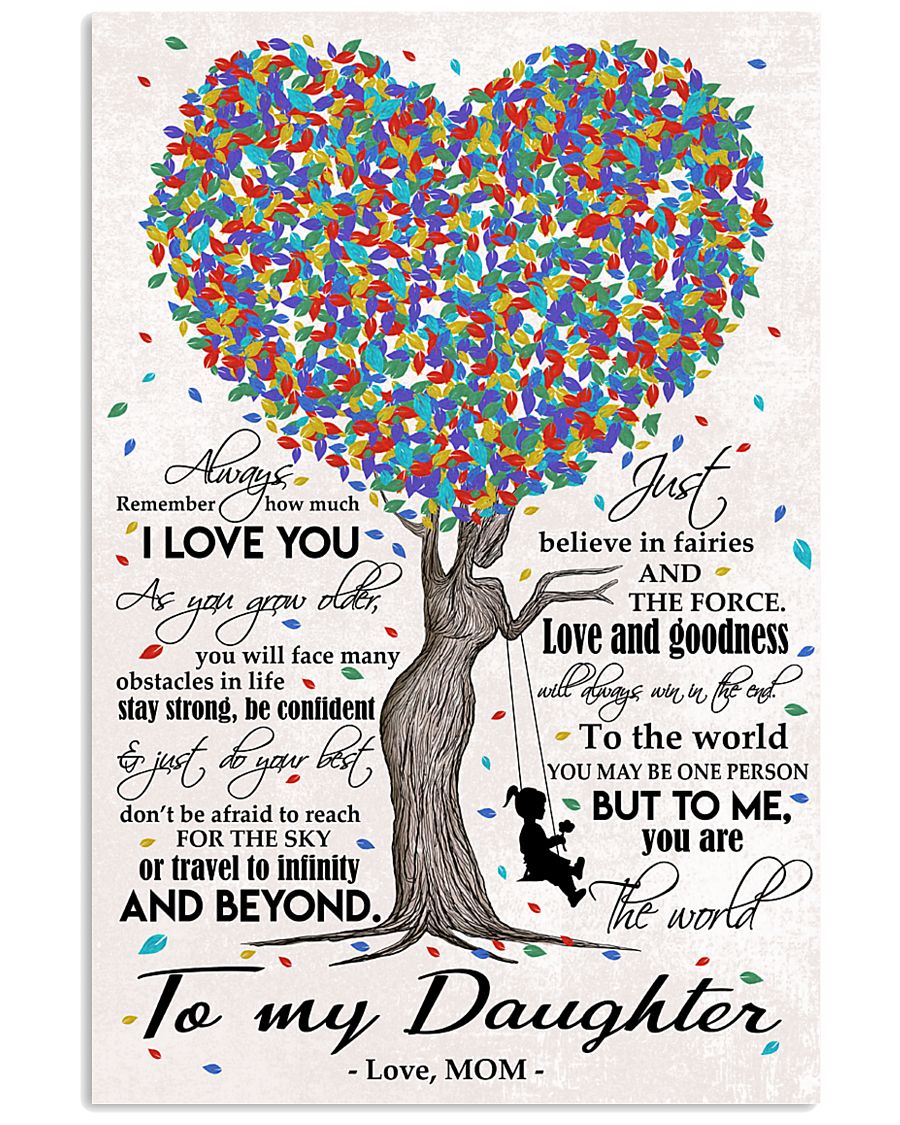 Always
Remember how much
I LOVE YOU
As you grow older,
you will face many
obstacles in life
stay strong, be confident
& just do your best
don't be afraid to reach
FOR THE SKY
or travel to infinity
AND BEYOND.
Just
believe in fairies
AND
THE FORCE.
Love and goodness
will always win, in the end.
To the world
YOU MAY BE ONE PERSON
BUT TO ME,
you are
The world
To my Daughter
- Love, MOM -